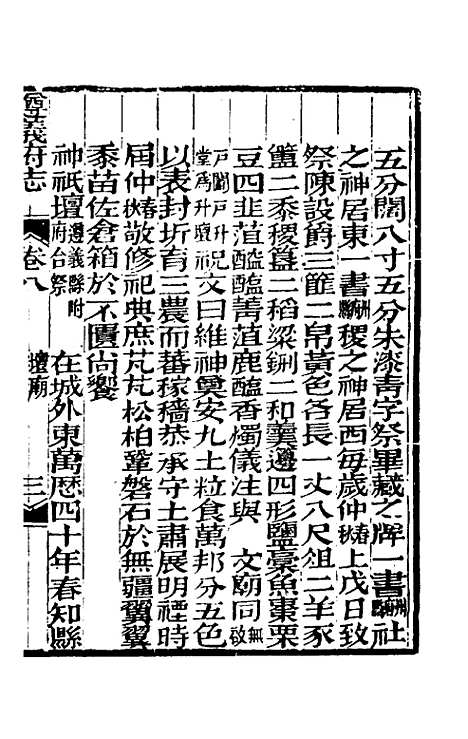 五分闊八寸五分朱漆青字祭畢藏之牌一書州縣社
之神居東一書州縣稷之神居西每歲仲春秋上戊日致
祭陳設爵三篚二帛黃色各長一丈八尺俎二羊豕
簠二黍稷簋二稻粱鉶二和羹籩四形鹽藁魚棗栗
豆四韭菹醓醢菁菹鹿醢香燭儀注與 文廟同無啟
戶闔戶升堂爲升壇祝文曰維神奠安九土粒食萬邦分五色
以表封圻育三農而蕃稼穡恭承守土肅展明禋時
屆仲春秋敬修祀典庶芃芃松柏鞏磐石於無疆翼翼
黍苗佐倉箱於不匱尚饗
神祇壇遵義縣附府合祭 在城外東萬歷四十年春知縣
遵義府志 卷八 壇廟 三